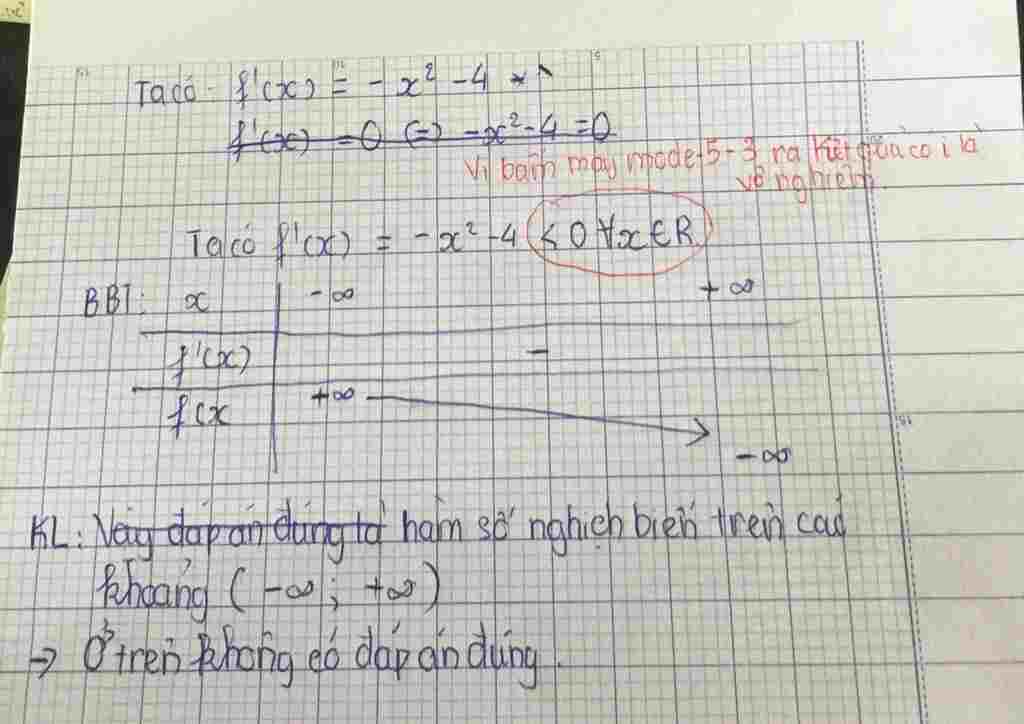 Ta có f'(x) = -x² - 4
f'(x) = 0 (=) -x² - 4 = 0
Vì bấm máy mode-5-3 ra kết quả có i là
vô nghiệm.
Ta có f'(x) = -x² - 4 < 0 ∀x ∈ R
BBT: x -∞ +∞
f'(x) -
f(x +∞
-∞
KL: Vậy đáp án đúng là hàm số nghịch biến trên các
khoảng (-∞; +∞)
→ Ở trên không có đáp án đúng.